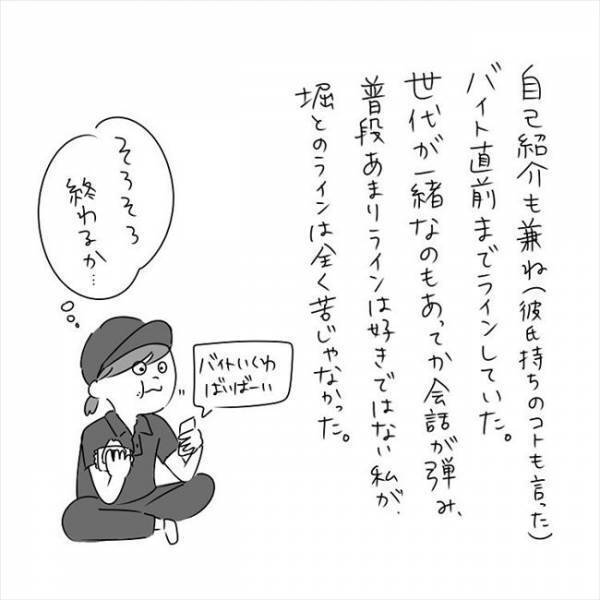 自己紹介も兼ね(彼氏持ちのコトも言った)
バイト直前までラインしていた。
世代が一緒なのもあってか会話が弾み、
普段あまりラインは好きではない私が、
堀とのラインは全く苦じゃなかった。
そろそろ
終わるか…
バイトいくわ
ばいばーい